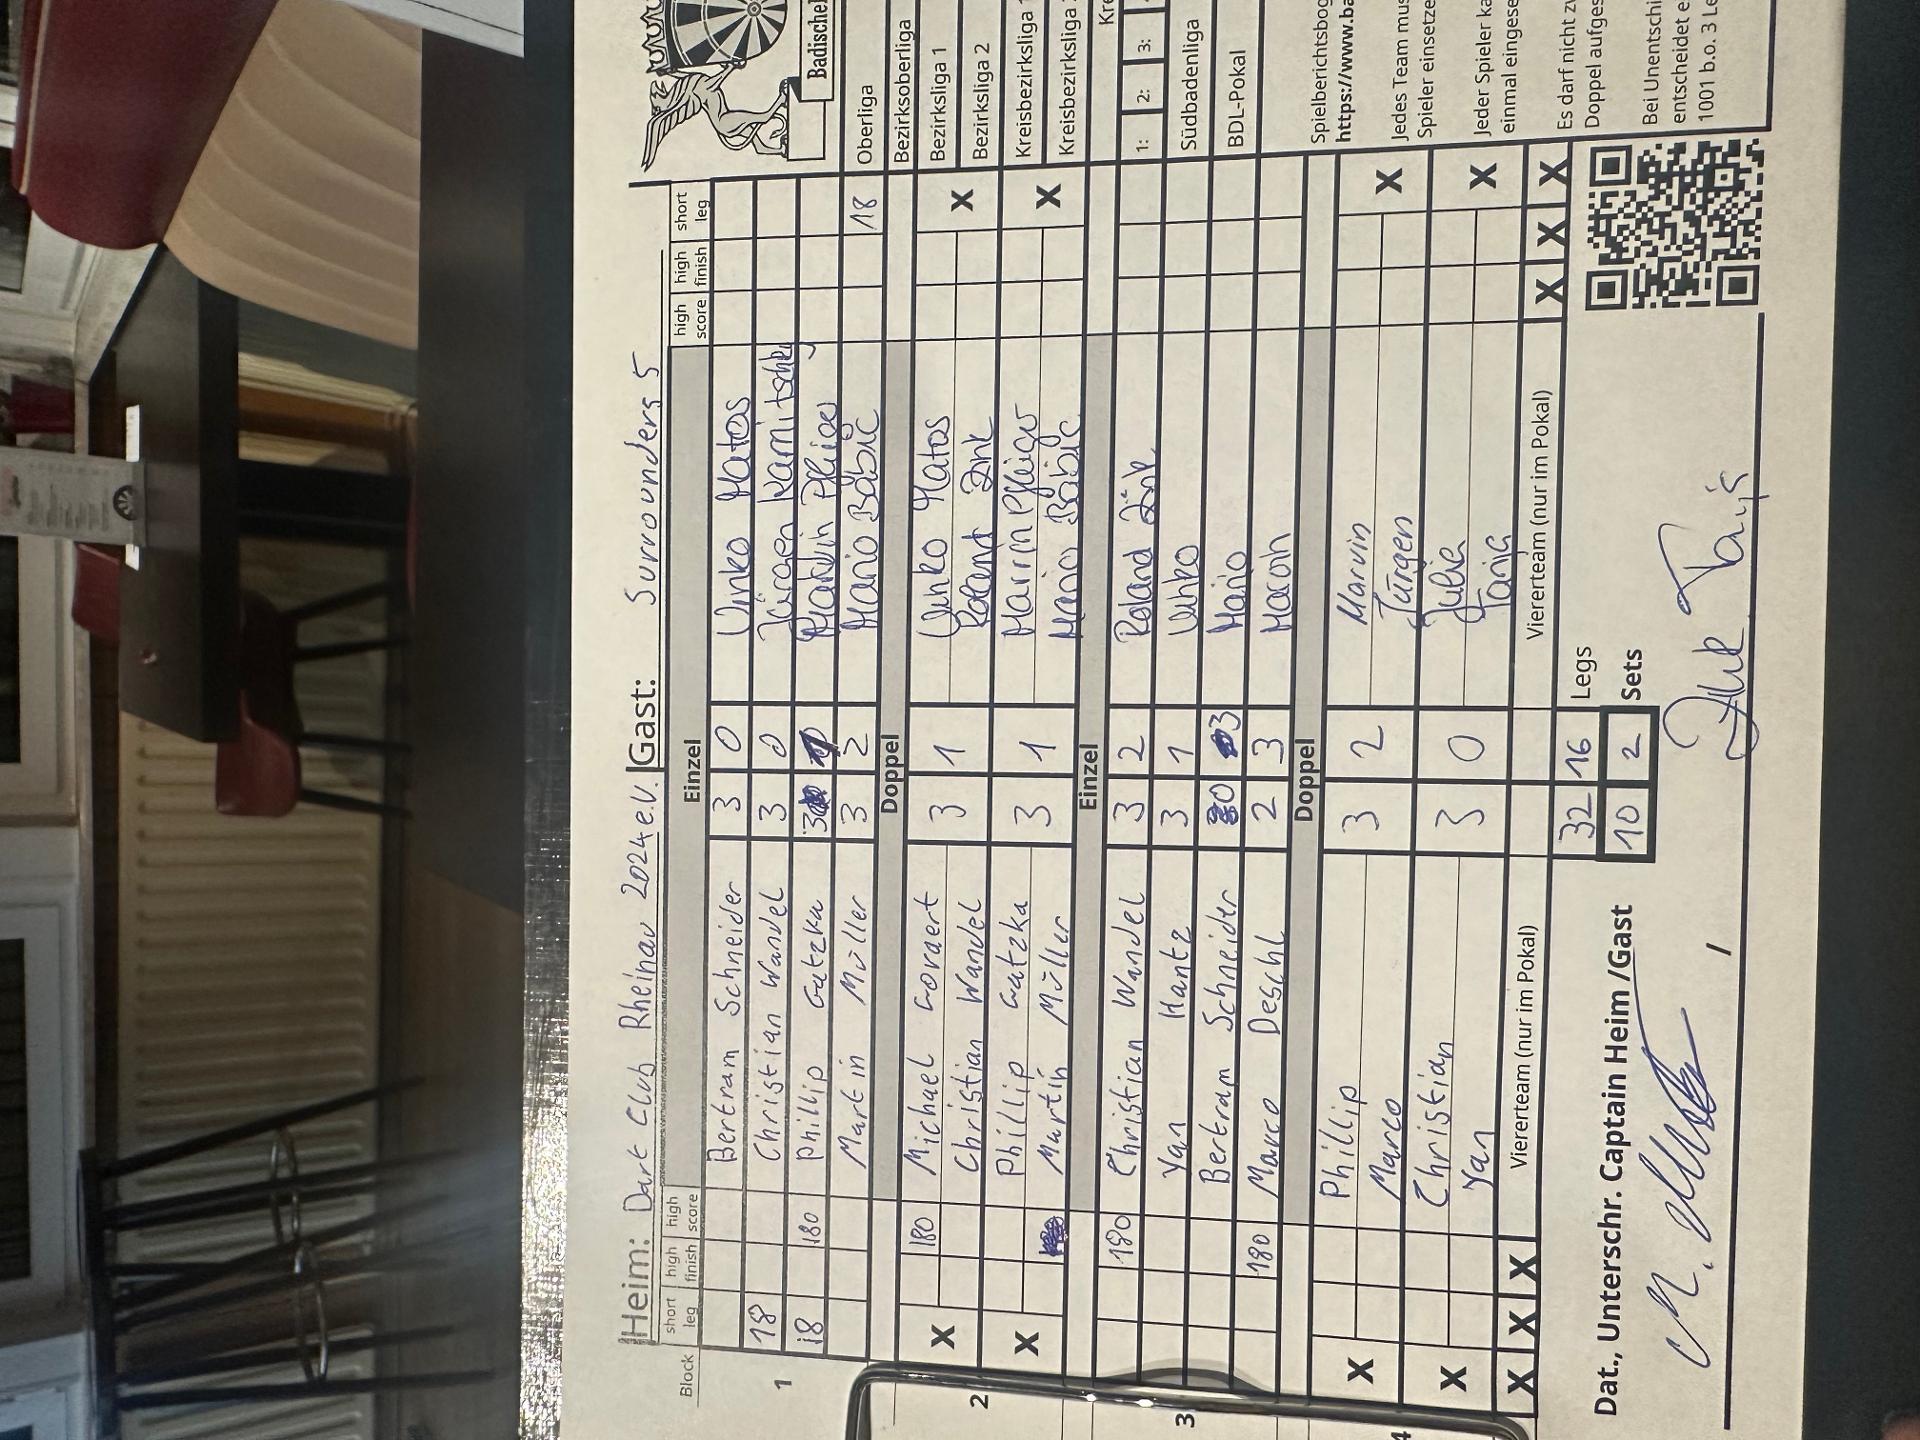 Heim: Dart Club Rheinau 2024 e.V. Gast: Surrounders 5
Block short leg high finish high score Einzel high score high finish short leg
1
Bertram Schneider 3 0 Vinko Matos
18 Christian Wandel 3 0 Jürgen Kamitschky
18 180 Phillip Gatzka 3
Martin Müller 3 2 Mario Babić 18
Doppel
2
180 Michael Govaert 3 1 Vinko Matos
X Christian Wandel Roland Zink X
Phillip Gatzka 3 1 Marvin Pflieger
X Martin Müller Mario Babić X
Einzel
3
180 Christian Wandel 3 2 Roland Zink
Yan Hantz 3 1 Vinko
Bertram Schneider 0 3 Mario
180 Marco Deschl 2 3
Doppel
4
X Phillip 3 2 Marvin X
Marco Jürgen
X Christian 3 0 Julia X
Yan Tanja
X X X Viererteam (nur im Pokal) Viererteam (nur im Pokal) X X X
32 16 Legs
10 2 Sets
Dat., Unterschr. Captain Heim/Gast
Badischer
Oberliga
Bezirksoberliga
Bezirksliga 1
Bezirksliga 2
Kreisbezirksliga 1
Kreisbezirksliga
Kre
1: 2: 3:
Südbadenliga
BDL-Pokal
Spielberichtsbog
https://www.ba
Jedes Team mus
Spieler einsetze
Jeder Spieler ka
einmal eingese
Es darf nicht zw
Doppel aufges
Bei Unentschi
entscheidet e
1001 b.o. 3 Le